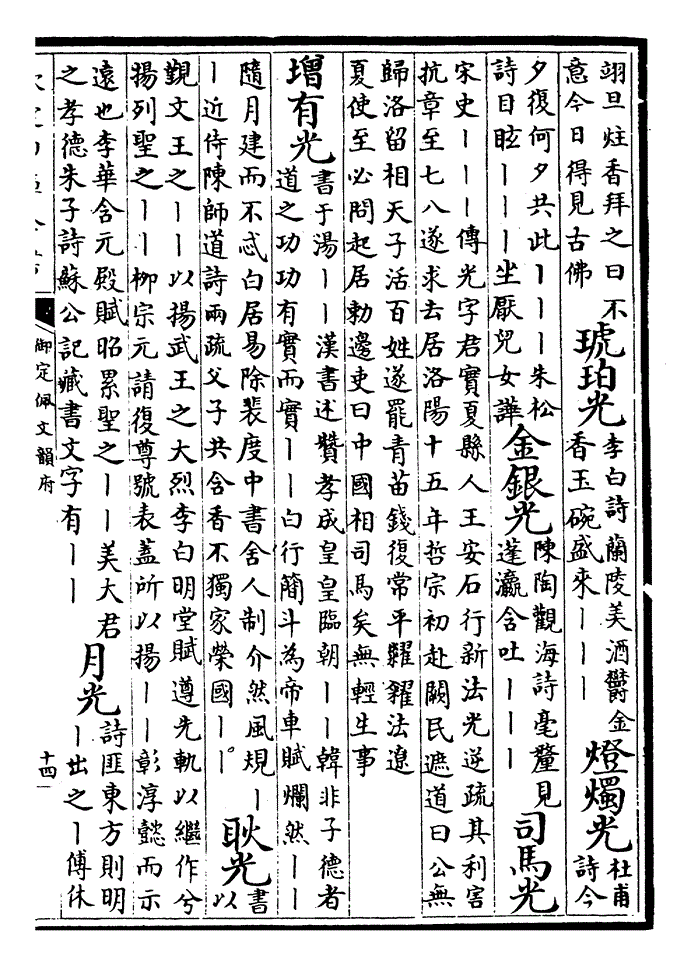 翊旦炷香拜之曰不
意今日得見古佛
琥珀光
李白詩蘭陵美酒鬱金
香玉碗盛來丨丨丨
燈燭光
杜甫
詩今
夕復何夕共此丨丨丨朱松
詩目眩丨丨丨坐厭兒女譁
金銀光
陳陶觀海詩毫釐見
蓬瀛含吐丨丨丨
司馬光
宋史丨丨丨傳光字君實夏縣人王安石行新法光逆疏其利害
抗章至七八遂求去居洛陽十五年哲宗初赴闕民遮道曰公無
歸洛留相天子活百姓遂罷青苗錢復常平糶糴法遼
夏使至必問起居勅邊吏曰中國相司馬矣無輕生事
增有光
書于湯丨丨漢書述贊孝成皇皇臨朝丨丨韓非子德者
道之功功有實而實丨丨白行簡斗為帝車賦爛然丨丨
隨月建而不忒白居易除裴度中書舍人制介然風規丨
丨近侍陳師道詩兩疏父子共含香不獨家榮國丨丨。
耿光
書
以
覲文王之丨丨以揚武王之大烈李白明堂賦遵先軌以繼作兮
揚列聖之丨丨栁宗元請復尊號表蓋所以揚丨丨彰淳懿而示
遠也李華含元殿賦昭累聖之丨丨美大君
之孝德朱子詩蘇公記藏書文字有丨丨
月光
詩匪東方則明
丨出之丨傅休
御定佩文韻府
十四